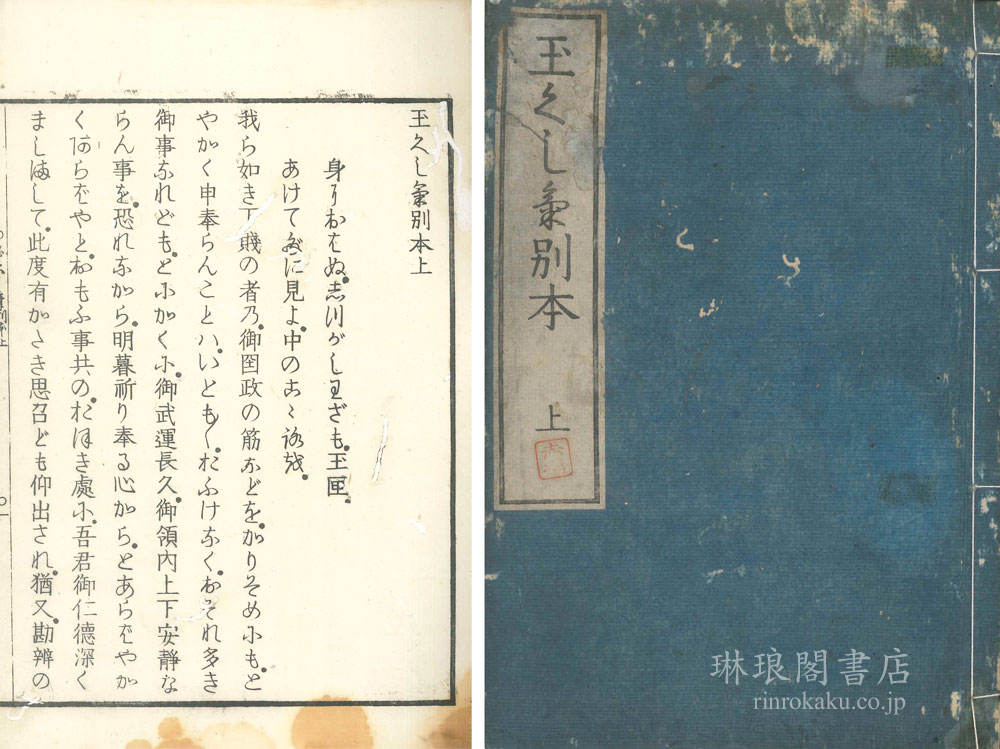 玉くし氣別本 上
玉くし氣別本上
身におはぬ。志川がしわざも。玉匣。
あけてだに見よ。中のこゝ路越。
我ら如き下賤の者乃。御国政の筋などを。かりそめにも。と
やかく申奉らんことハ。いとも〱。おふけなく。おそれ多き
御事なれども。とにかくに。御武運長久。御領内上下安静な
らん事を。恐れながら。明暮祈り奉る心から。とあらばやか
くあらばやと。おもふ事共の。おほき處に。吾君御仁徳深く
ましまして。此度有がたき思召ども仰出され。猶又。勘辨の
琳琅閣書店
rinrokaku.co.jp